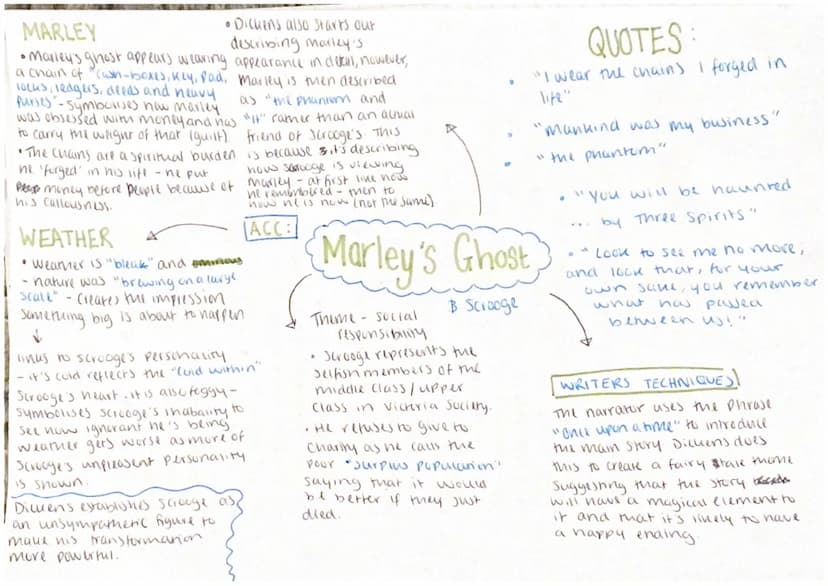 MARLEY
• Marley's ghost appears wearing
a chain of "cash-boxes, key, pad,
locks, ledgers, deeds and heavy
purses" - symbolises how marley
was obsessed with money and has
to carry the weight of that (guilt).
• The chains are a spiritual burden
he 'forged' in his life - he put
money before people because of
his callousness.
• Dickens also starts out
describing marley's
appearance in detail, however,
Marley is then described
as "the phantom" and
"it" rather than an actual
friend of scrooge's. This
is because it's describing
how scrooge is viewing
marley - at first like how
he remembered - then to
how he is now (not the same)
QUOTES:
• "I wear the chains I forged in
life"
• "Mankind was my business"
• "the phantom"
• "You will be haunted
... by Three Spirits"
• "Look to see me no more,
and look that, for your
own sake, you remember
what has passed
between us!"
ACC:
Marley's Ghost
B Scrooge
WEATHER
• Weather is "bleak" and
- nature was "brewing on a large
scale" - creates the impression
something big is about to happen
links to scrooge's personality
- it's cold reflects the "cold within"
scrooge's heart. it is also foggy -
symbolises scrooge's inabality to
see how ignorant he's being
weather gets worse as more of
scrooge's unpleasent personality
is shown.
Dickens establishes scrooge as
an unsympathetic figure to
make his transformation
more powerful.
Theme - social
responsibility
• Scrooge represents the
selfish members of the
middle class/upper
class in Victoria society.
• He refuses to give to
Charity as he calls the
poor "surplus population"
saying that it would
be better if they just
died.
WRITERS TECHNIQUES
The narrator uses the phrase
"once upon a time" to introduce
the main story. Dickens does
this to create a fairy tale theme
suggesting that the story
will have a magical element to
it and that it's likely to have
a happy ending.